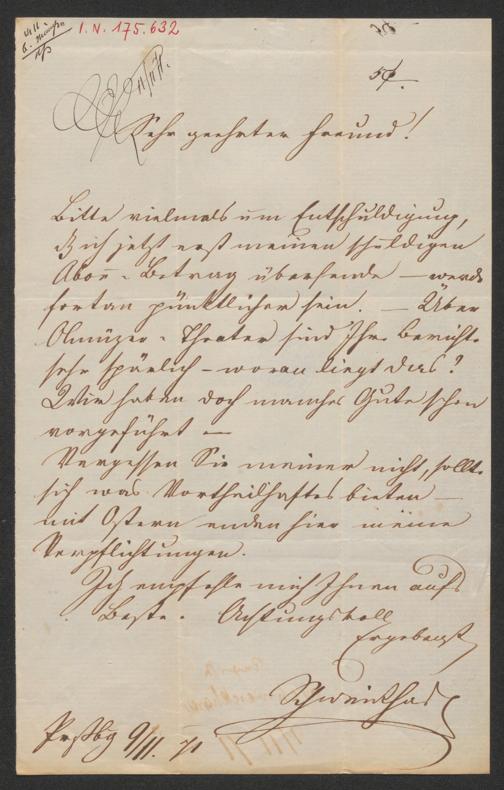 I. N. 175.632
11/11 71.
5f.
Sehr geehrter Freund!
Bitte vielmals um Entschuldigung,
ß ich jetzt erst meinen schuldigen
Abon-Betrag übersende — werde
fortan pünktlicher sein. — Über
Olmüzer-Theater sind Ihre Berichte
sehr spärlich — woran liegt das?
Wir haben doch manches Gute schon
vorgeführt —
Vergessen Sie meiner nicht, sollte
sich was Vortheilhaftes bieten —
mit Ostern enden hier meine
Verpflichtungen.
Ich empfehle mich Ihnen aufs
Beste. Achtungsvoll
Ergebenst
Prßbg 9/11. 71